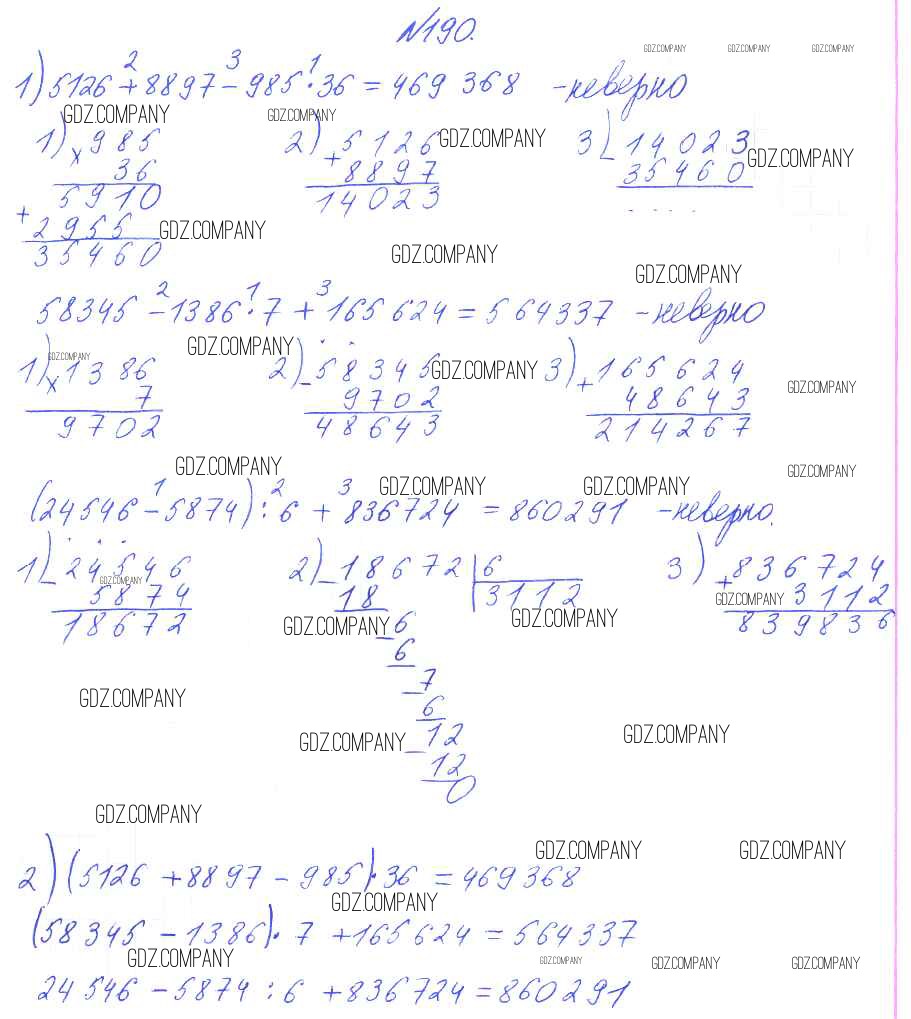 №190.
GDZ.COMPANY GDZ.COMPANY GDZ.COMPANY
2 3 1
1) 5126 + 8897 - 985 · 36 = 469 368 - неверно
GDZ.COMPANY GDZ.COMPANY
1) × 985 2) + 5126 GDZ.COMPANY 3) - 14023
36 8897 35460 GDZ.COMPANY
5910 14023 . . . .
+ 2955 GDZ.COMPANY
35460 GDZ.COMPANY
GDZ.COMPANY
2 1 3
58345 - 1386 · 7 + 165 624 = 564337 - неверно
GDZ.COMPANY GDZ.COMPANY
1) × 1386 2) - 58345 GDZ.COMPANY 3) + 165624
7 9702 48643 GDZ.COMPANY
9702 48643 214267
GDZ.COMPANY GDZ.COMPANY
1 2 3 GDZ.COMPANY GDZ.COMPANY
(24546 - 5874) : 6 + 836724 = 860291 - неверно.
1) - 24546 2) - 18672 | 6 3) + 836724
GDZ.COMPANY
5874 18 3112 GDZ.COMPANY 3112
18672 GDZ.COMPANY - 6 GDZ.COMPANY 839836
6
- 7
GDZ.COMPANY 6
GDZ.COMPANY - 12 GDZ.COMPANY
12
0
GDZ.COMPANY
GDZ.COMPANY GDZ.COMPANY
2) (5126 + 8897 - 985) · 36 = 469368
GDZ.COMPANY
(58345 - 1386) · 7 + 165624 = 564337
GDZ.COMPANY GDZ.COMPANY GDZ.COMPANY GDZ.COMPANY
24546 - 5874 : 6 + 836724 = 860291